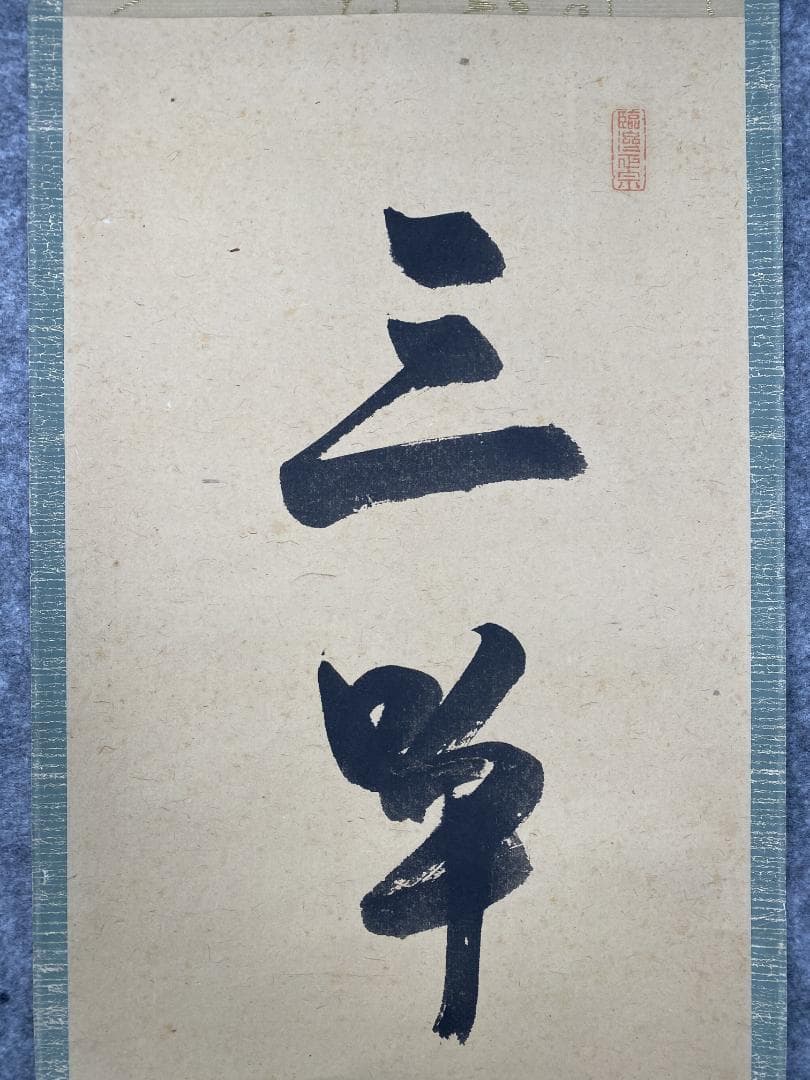 臨濟正宗
三